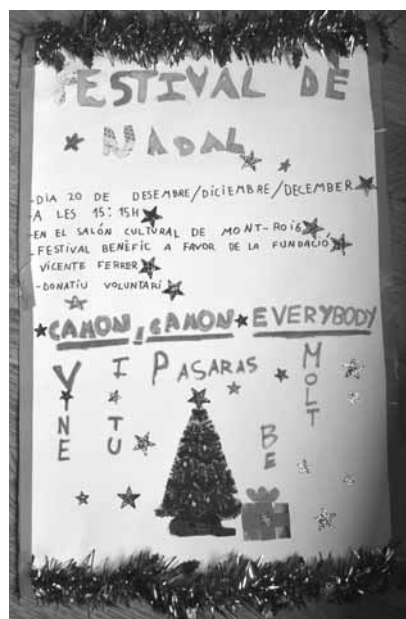 FESTIVAL DE
NADAL
-DIA 20 DE DESEMBRE/DICIEMBRE/DECEMBER
-A LES 15:15H
-EN EL SALÓN CULTURAL DE MONT-ROIG
-FESTIVAL BENÈFIC A FAVOR DE LA FUNDACIÓ
VICENTE FERRER
-DONATIU VOLUNTARI
CAMON, CAMON EVERYBODY
VINE I TU PASARAS MOLT BE